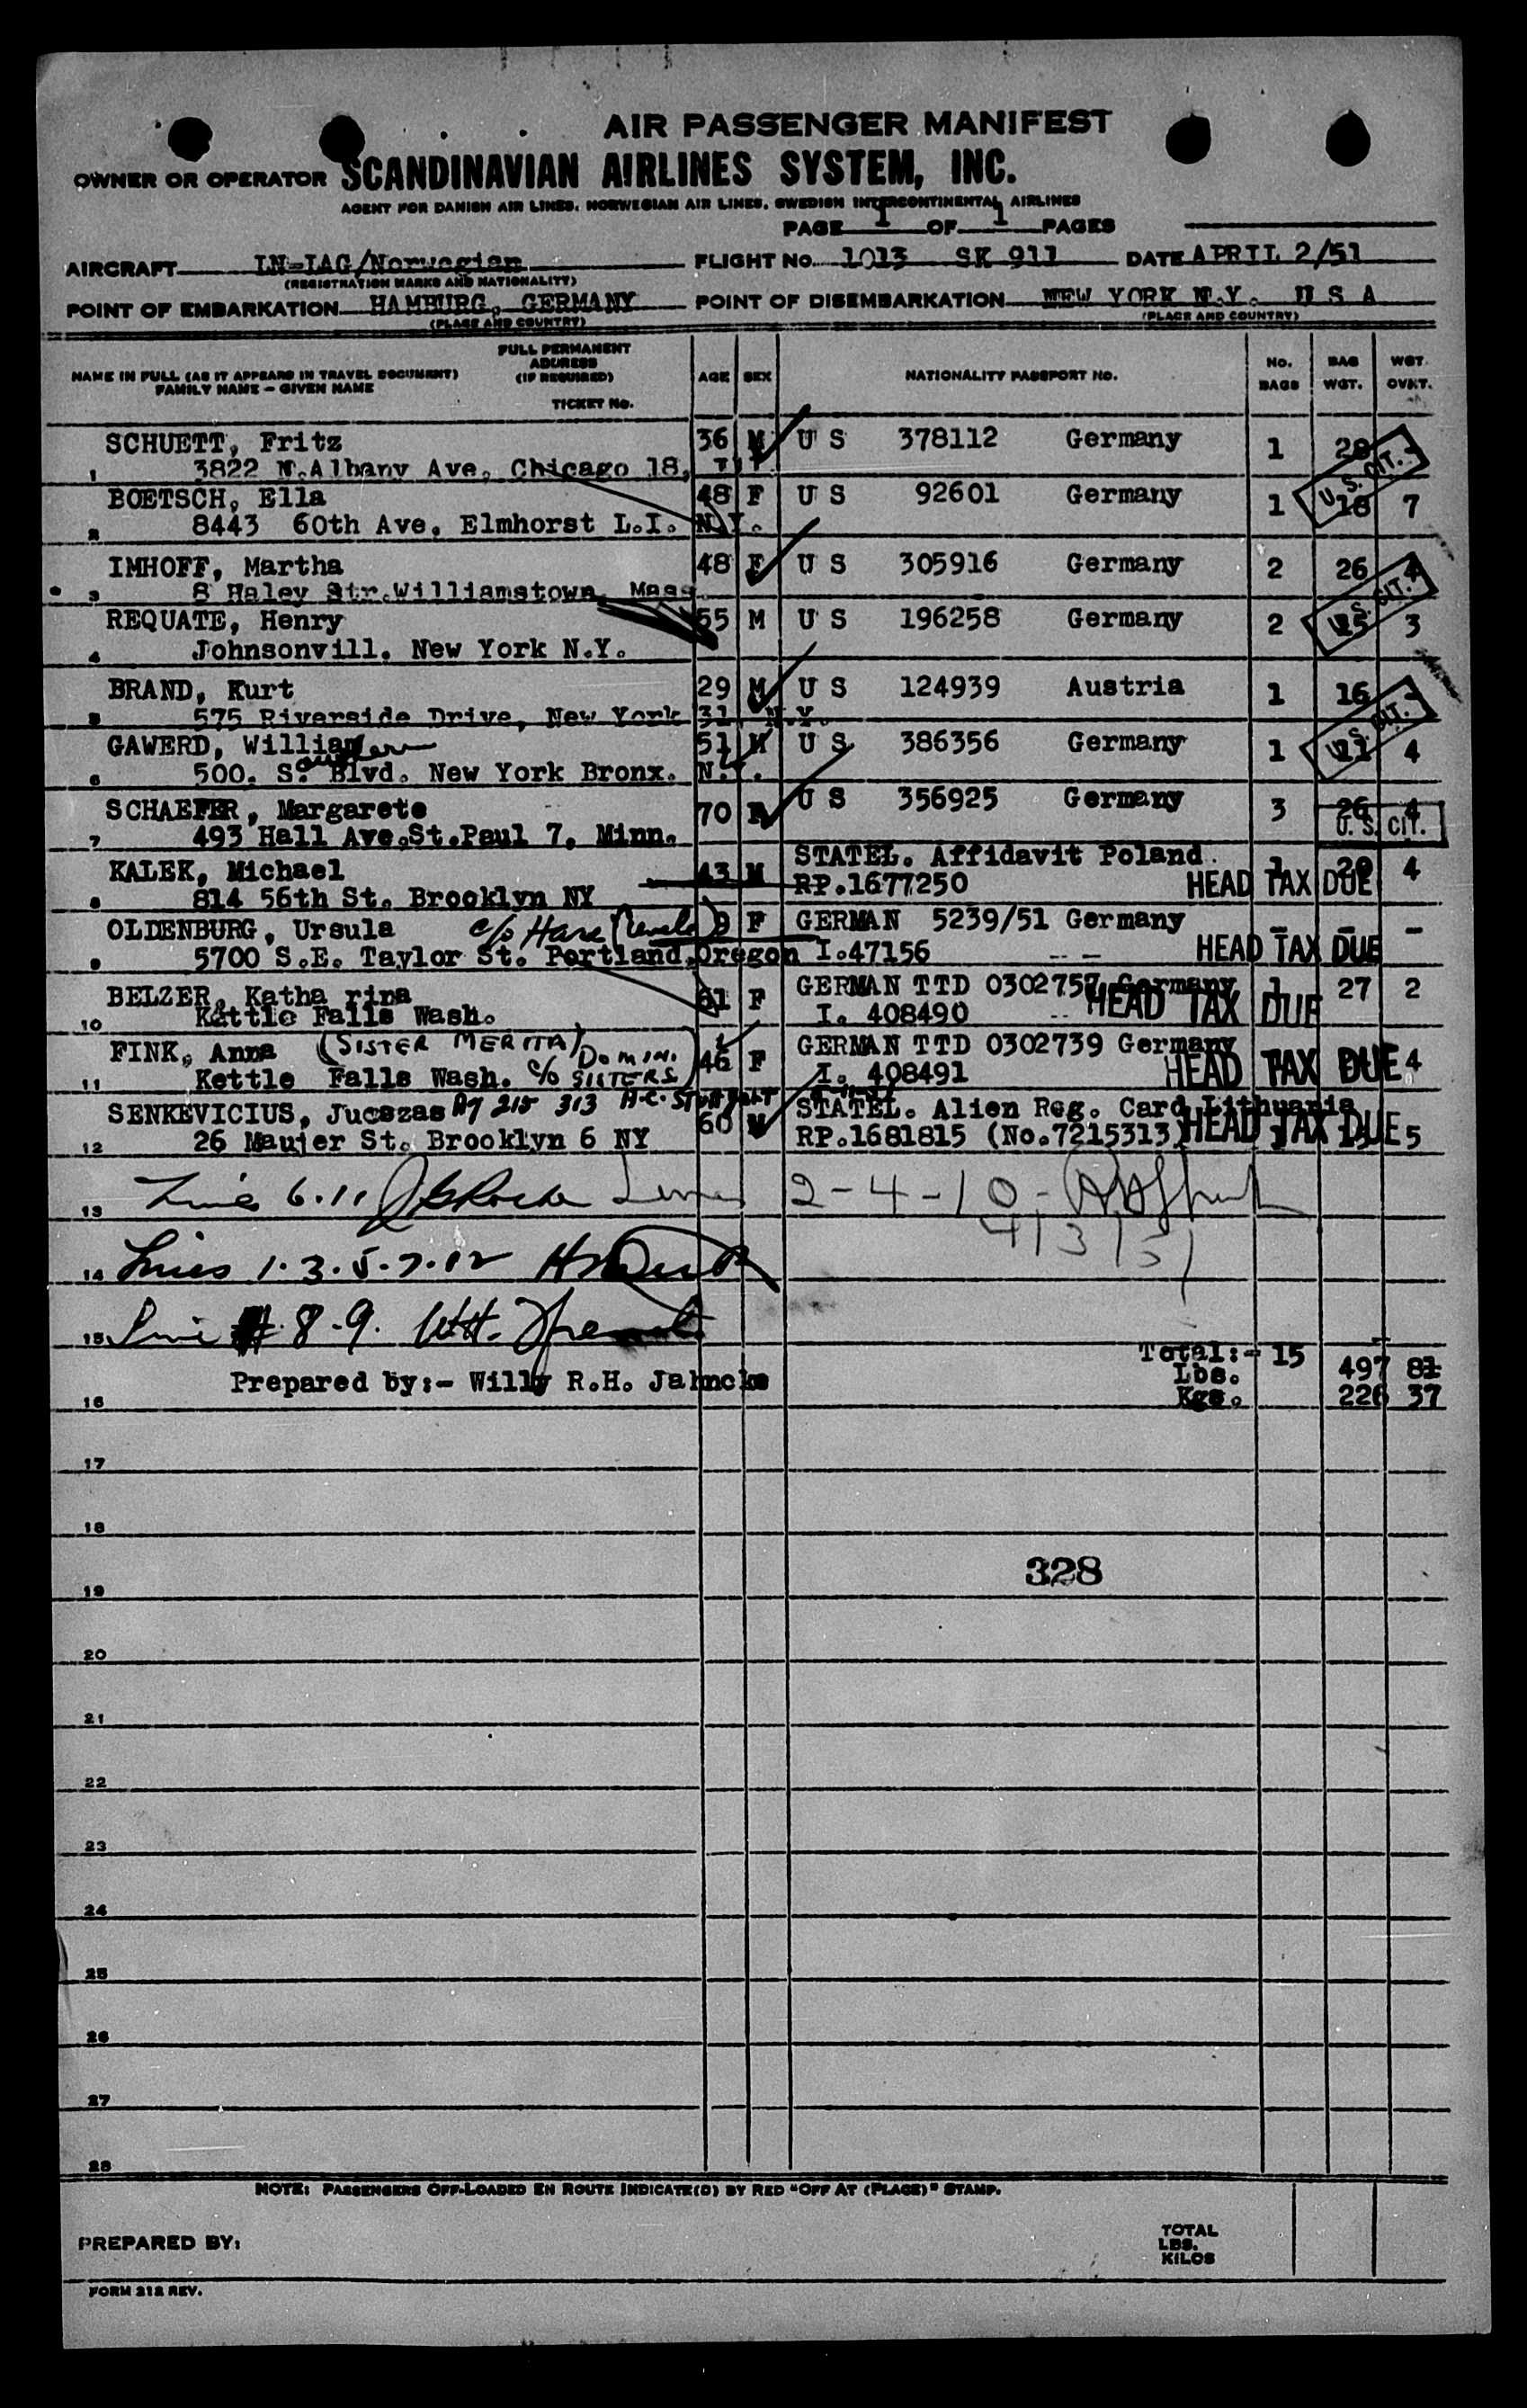 AIR PASSENGER MANIFEST
OWNER OR OPERATOR SCANDINAVIAN AIRLINES SYSTEM, INC.
AGENT FOR DANISH AIR LINES, NORWEGIAN AIR LINES, SWEDISH INTERCONTINENTAL AIRLINES
PAGE 1 OF 1 PAGES
AIRCRAFT LN-IAG/Norwegian FLIGHT No. 1013 SK 911 DATE APRIL 2/51
(REGISTRATION MARKS AND NATIONALITY)
POINT OF EMBARKATION HAMBURG, GERMANY POINT OF DISEMBARKATION NEW YORK N.Y. U S A
(PLACE AND COUNTRY) (PLACE AND COUNTRY)
NAME IN FULL (AS IT APPEARS IN TRAVEL DOCUMENT) FAMILY NAME - GIVEN NAME FULL PERMANENT ADDRESS (IF REQUIRED) TICKET No. AGE SEX NATIONALITY PASSPORT No. No. BAGS BAG WGT. WGT. OVKT.
SCHUETT, Fritz 36 M U S 378112 Germany 1 20 -
1 3822 N.Albany Ave. Chicago 18, Ill. U.S. CIT.
BOETSCH, Ella 48 F U S 92601 Germany 1 18 7
2 8443 60th Ave. Elmhorst L.I. N.Y.
IMHOFF, Martha 48 F U S 305916 Germany 2 26 4
3 8 Haley Str.Williamstown, Mass. U.S. CIT.
REQUATE, Henry 55 M U S 196258 Germany 2 25 3
4 Johnsonvill. New York N.Y.
BRAND, Kurt 29 M U S 124939 Austria 1 16 -
5 575 Riverside Drive, New York 31, N.Y. U.S. CIT.
GAWERD, William 51 M U S 386356 Germany 1 21 4
6 500. S. Blvd. New York Bronx. N.Y.
SCHAEFER, Margarete 70 F U S 356925 Germany 3 26 4
7 493 Hall Ave.St.Paul 7, Minn. U.S. CIT.
KALEK, Michael 43 M STATEL. Affidavit Poland 1 20 4
8 814 56th St. Brooklyn NY RP.1677250 HEAD TAX DUE
OLDENBURG, Ursula c/o Hare 9 F GERMAN 5239/51 Germany - - -
9 5700 S.E. Taylor St. Portland.Oregon I.47156 HEAD TAX DUE
BELZER, Katha rina 61 F GERMAN TTD 0302757 Germany 1 27 2
10 Kettle Falls Wash. I. 408490 HEAD TAX DUE
FINK, Anna (SISTER MERITA) 46 F GERMAN TTD 0302739 Germany 4
11 Kettle Falls Wash. c/o DOMIN. SISTERS I. 408491 HEAD TAX DUE
SENKEVICIUS, Jucszas A7 215 313 60 M STATEL. Alien Reg. Card Lithuania
12 26 Maujer St. Brooklyn 6 NY RP.1681815 (No.7215313) HEAD TAX DUE 5
13 Line 6.11 Lines 2-4-10-
4/3/51
14 Lines 1.3.5.7.12
15 Line # 8-9.
Total:- 15 497 81
Prepared by:- Willy R.H. Jahncke Lbs.
16 Kgs. 226 37
17
18
328
19
20
21
22
23
24
25
26
27
28
NOTE: PASSENGERS OFF-LOADED EN ROUTE INDICATE(D) BY RED "OFF AT (PLACE)" STAMP.
PREPARED BY: TOTAL LBS. KILOS
FORM 212 REV.